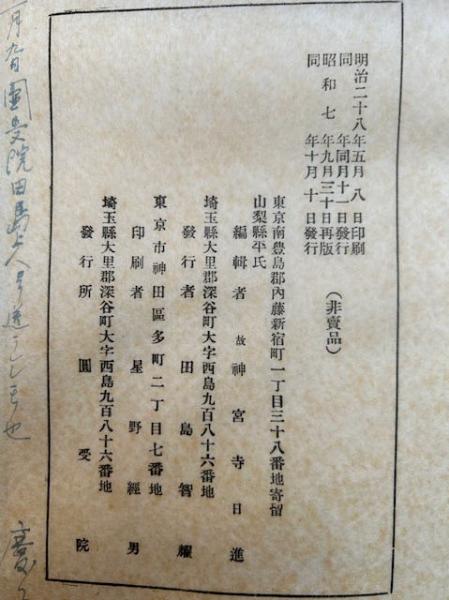 明治二十八年五月八日印刷
同年同月十一日發行
昭和七年九月三十日再版
同年十月十日發行
(非賣品)
東京南豊島郡內藤新宿町一丁目三十八番地寄留
山梨縣平氏
編輯者 故神宮寺日進
埼玉縣大里郡深谷町大字西島九百八十六番地
發行者 田島智耀
東京市神田區多町二丁目七番地
印刷者 星野經男
埼玉縣大里郡深谷町大字西島九百八十六番地
發行所 圓受院
月九日圓受院田島上人
也